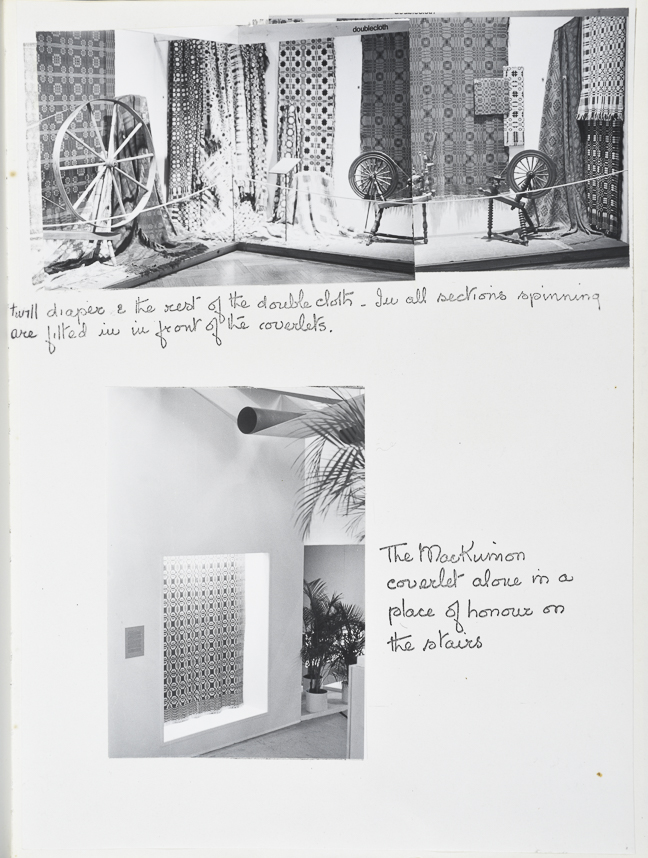 doublecloth
twill diaper & the rest of the double cloth - In all sections spinning
are fitted in in front of the coverlets.
The MacKinnon
coverlet alone in a
place of honour on
the stairs